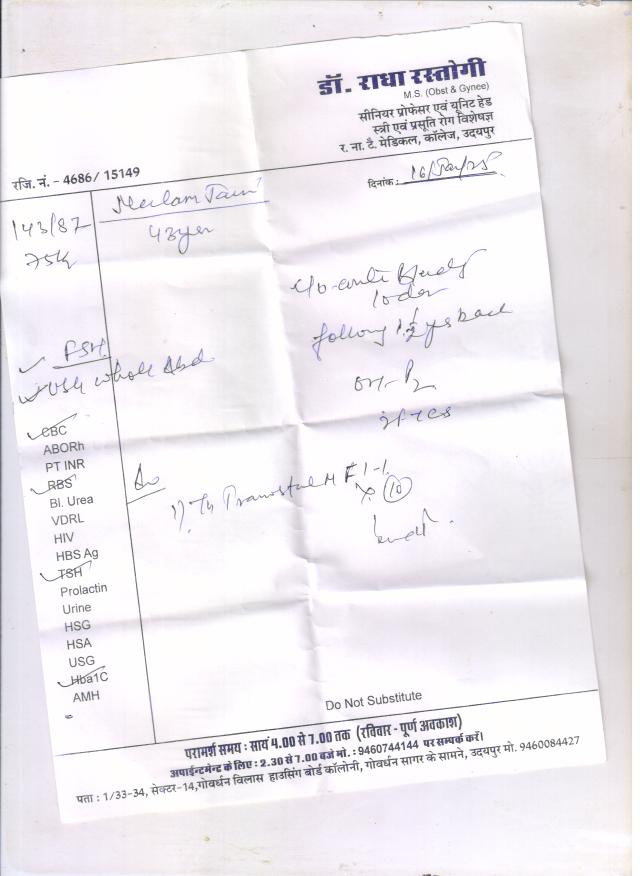 डॉ. राधा रस्तोगी
M.S. (Obst & Gynee)
सीनियर प्रोफेसर एवं यूनिट हेड
स्त्री एवं प्रसूति रोग विशेषज्ञ
र. ना. टै. मेडिकल, कॉलेज, उदयपुर
रजि. नं. - 4686/ 15149
दिनांक : 16/Jan/25
Neelam Jain
143/87
43yer
75k
FSH
USG whole Abd
following 1½ yrs back
CBC
ABORh
PT INR
RBS
Bl. Urea
VDRL
HIV
HBS Ag
TSH
Prolactin
Urine
HSG
HSA
USG
Hba1C
AMH
MF 1-1
x 10
Do Not Substitute
परामर्श समय : सायं 4.00 से 7.00 तक (रविवार - पूर्ण अवकाश)
अपाईन्टमेन्ट के लिए : 2.30 से 7.00 बजे मो. : 9460744144 पर सम्पर्क करें।
पता : 1/33-34, सेक्टर-14,गोवर्धन विलास हाउसिंग बोर्ड कॉलोनी, गोवर्धन सागर के सामने, उदयपुर मो. 9460084427